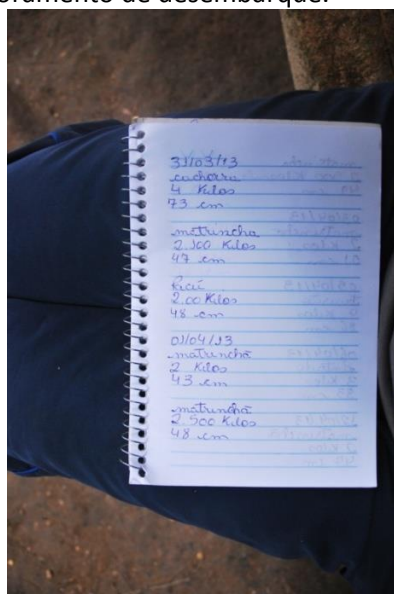 31/03/13
cachorra
4 Kilos
73 cm
matrincha
2.100 Kilos
47 cm
2.00 Kilos
48 cm
01/04/13
matrinchã
2 Kilos
43 cm
matrinchã
2.500 Kilos
48 cm